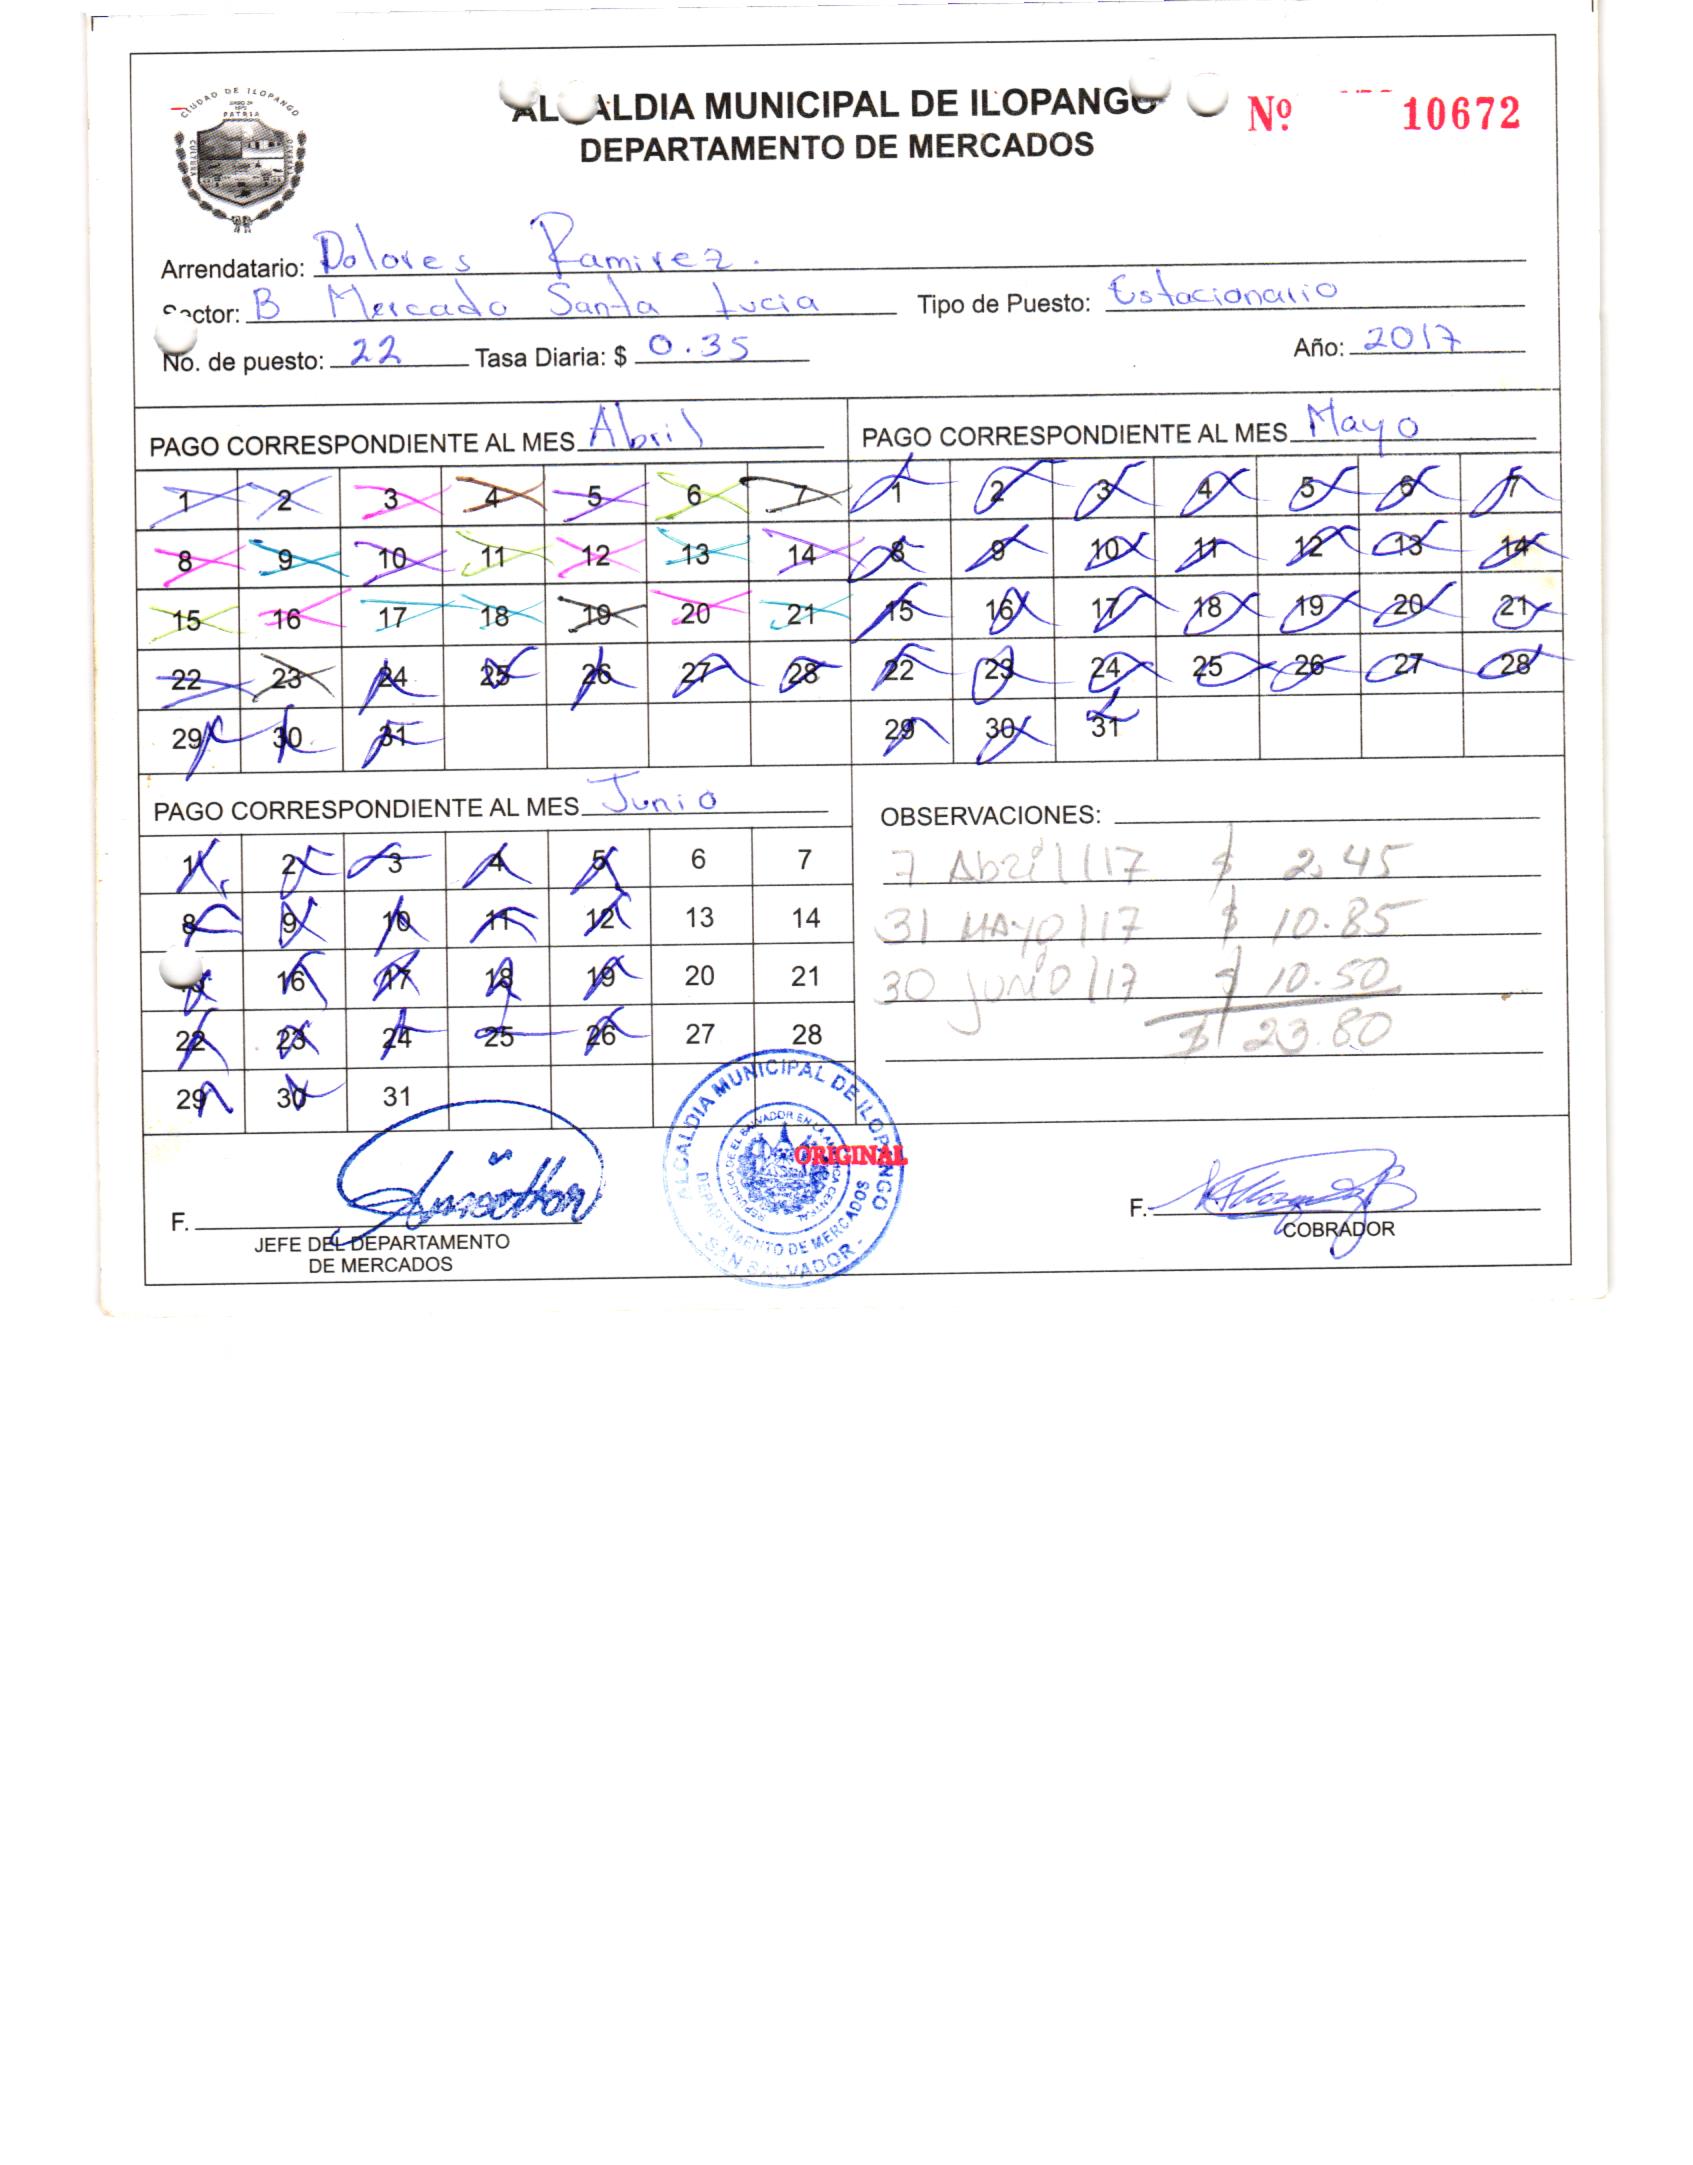 CIUDAD DE ILOPANGO
PATRIA
CULTURA
ALCALDIA MUNICIPAL DE ILOPANGO
DEPARTAMENTO DE MERCADOS
Nº 10672
Arrendatario: Dolores Ramirez.
Sector: B Mercado Santa Lucia Tipo de Puesto: Estacionario
No. de puesto: 22 Tasa Diaria: $ 0.35 Año: 2017
PAGO CORRESPONDIENTE AL MES Abril
1 2 3 4 5 6 7
8 9 10 11 12 13 14
15 16 17 18 19 20 21
22 23 24 25 26 27 28
29 30 31
PAGO CORRESPONDIENTE AL MES Mayo
1 2 3 4 5 6 7
8 9 10 11 12 13 14
15 16 17 18 19 20 21
22 23 24 25 26 27 28
29 30 31
PAGO CORRESPONDIENTE AL MES Junio
1 2 3 4 5 6 7
8 9 10 11 12 13 14
15 16 17 18 19 20 21
22 23 24 25 26 27 28
29 30 31
OBSERVACIONES:
7 Abril/17 $ 2.45
31 MAYO/17 $ 10.85
30 junio/17 $ 10.50
$ 23.80
ALCALDIA MUNICIPAL DE ILOPANGO
REPUBLICA DE EL SALVADOR EN LA AMERICA CENTRAL
DEPARTAMENTO DE MERCADOS
- SAN SALVADOR -
ORIGINAL
F.
JEFE DEL DEPARTAMENTO
DE MERCADOS
F.
COBRADOR